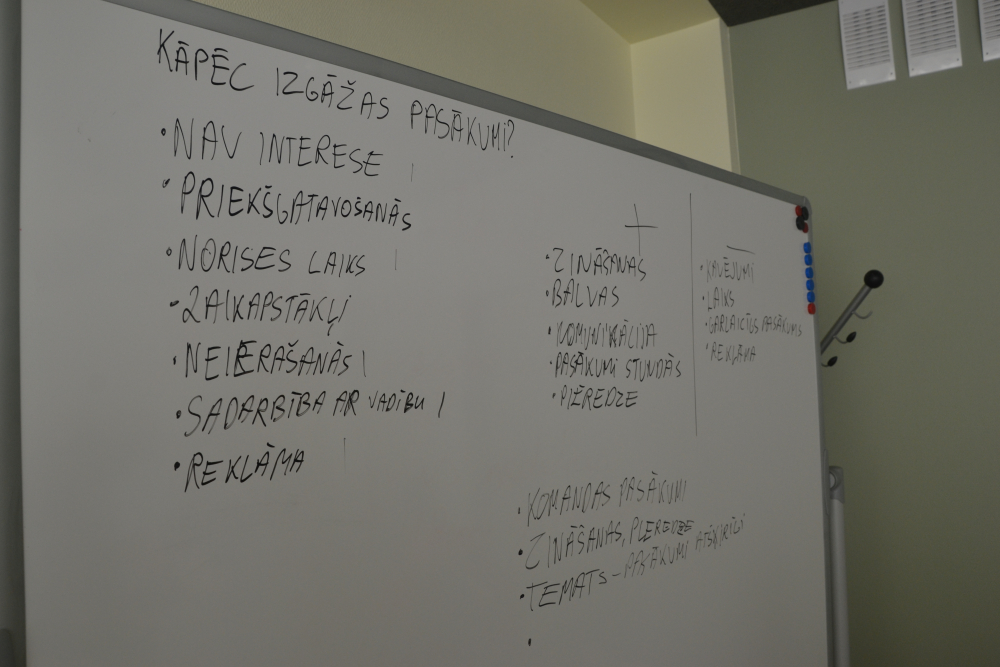 KĀPĒC IZGĀŽAS PASĀKUMI?
• NAV INTERESE |
• PRIEKŠGATAVOŠANĀS
• NORISES LAIKS |
• LAIKAPSTĀKĻI
• NEIERAŠANĀS |
• SADARBĪBA AR VADĪBU |
• REKLĀMA |
+
• ZINĀŠANAS
• BALVAS
• KOMUNIKĀCIJA
• PASĀKUMI STUNDĀS
• PIEREDZE
—
• KAVĒJUMI
• LAIKS
• GARLAICĪGS PASĀKUMS
• REKLĀMA
• KOMANDAS PASĀKUMI
• ZINĀŠANAS, PIEREDZE
• TEMATS – PASĀKUMI ATŠĶIRĪGI
•